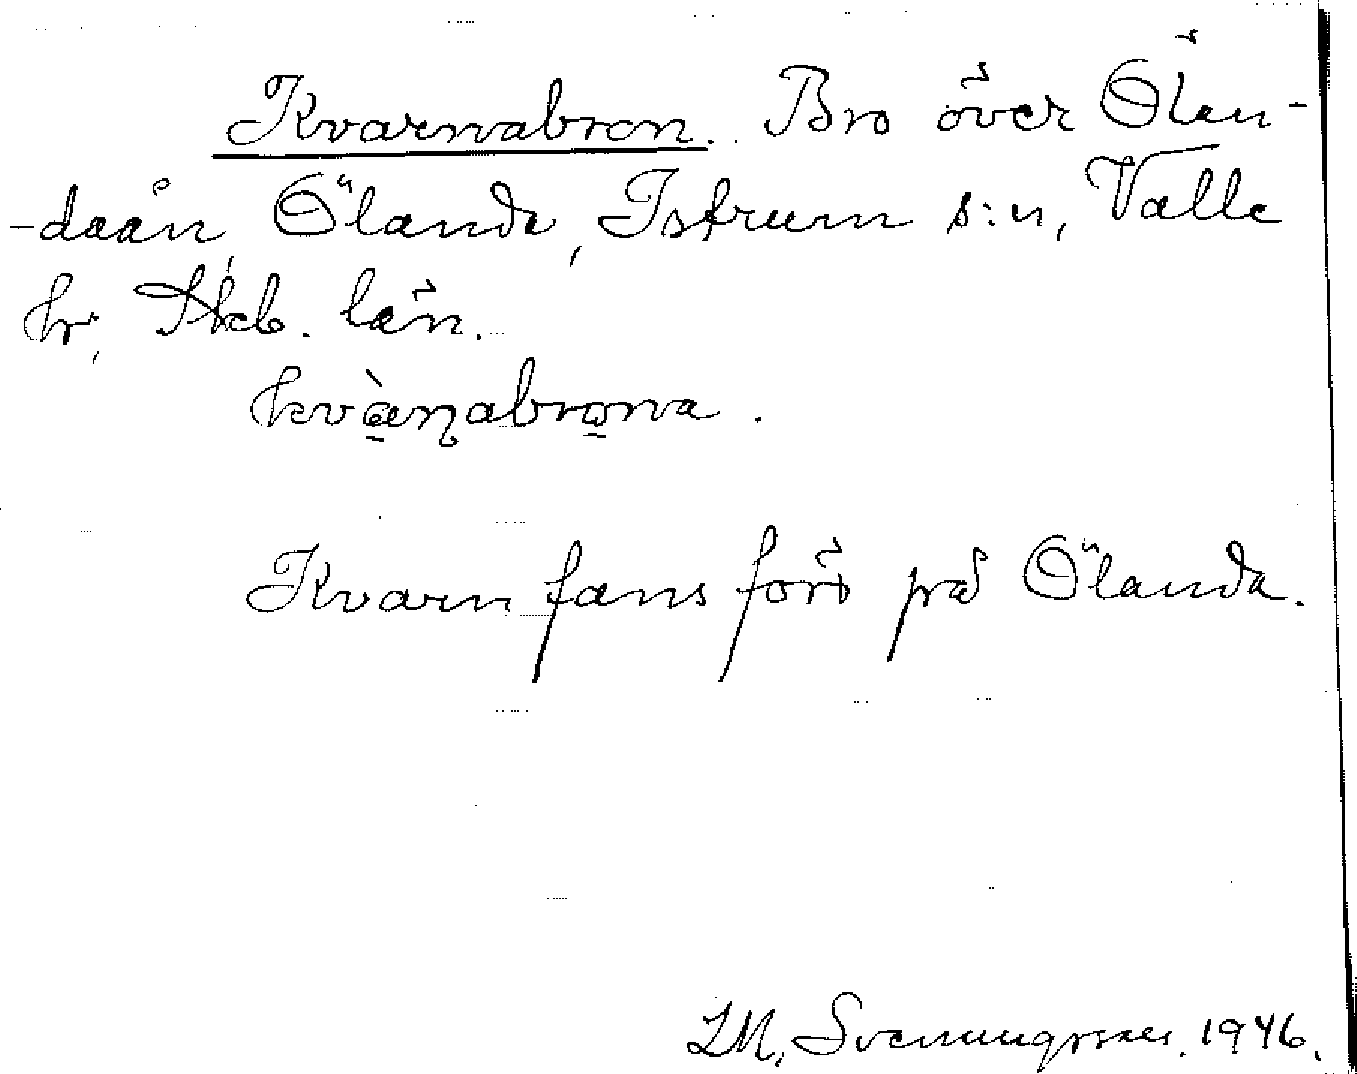 Kvarnabron. Bro över Ölan-
-daån, Ölanda, Istrum s:n, Valle
hr, Skb. län.
kvàɳabrona.
Kvarn fans förr på Ölanda.
LM. Svenungsson. 1946.